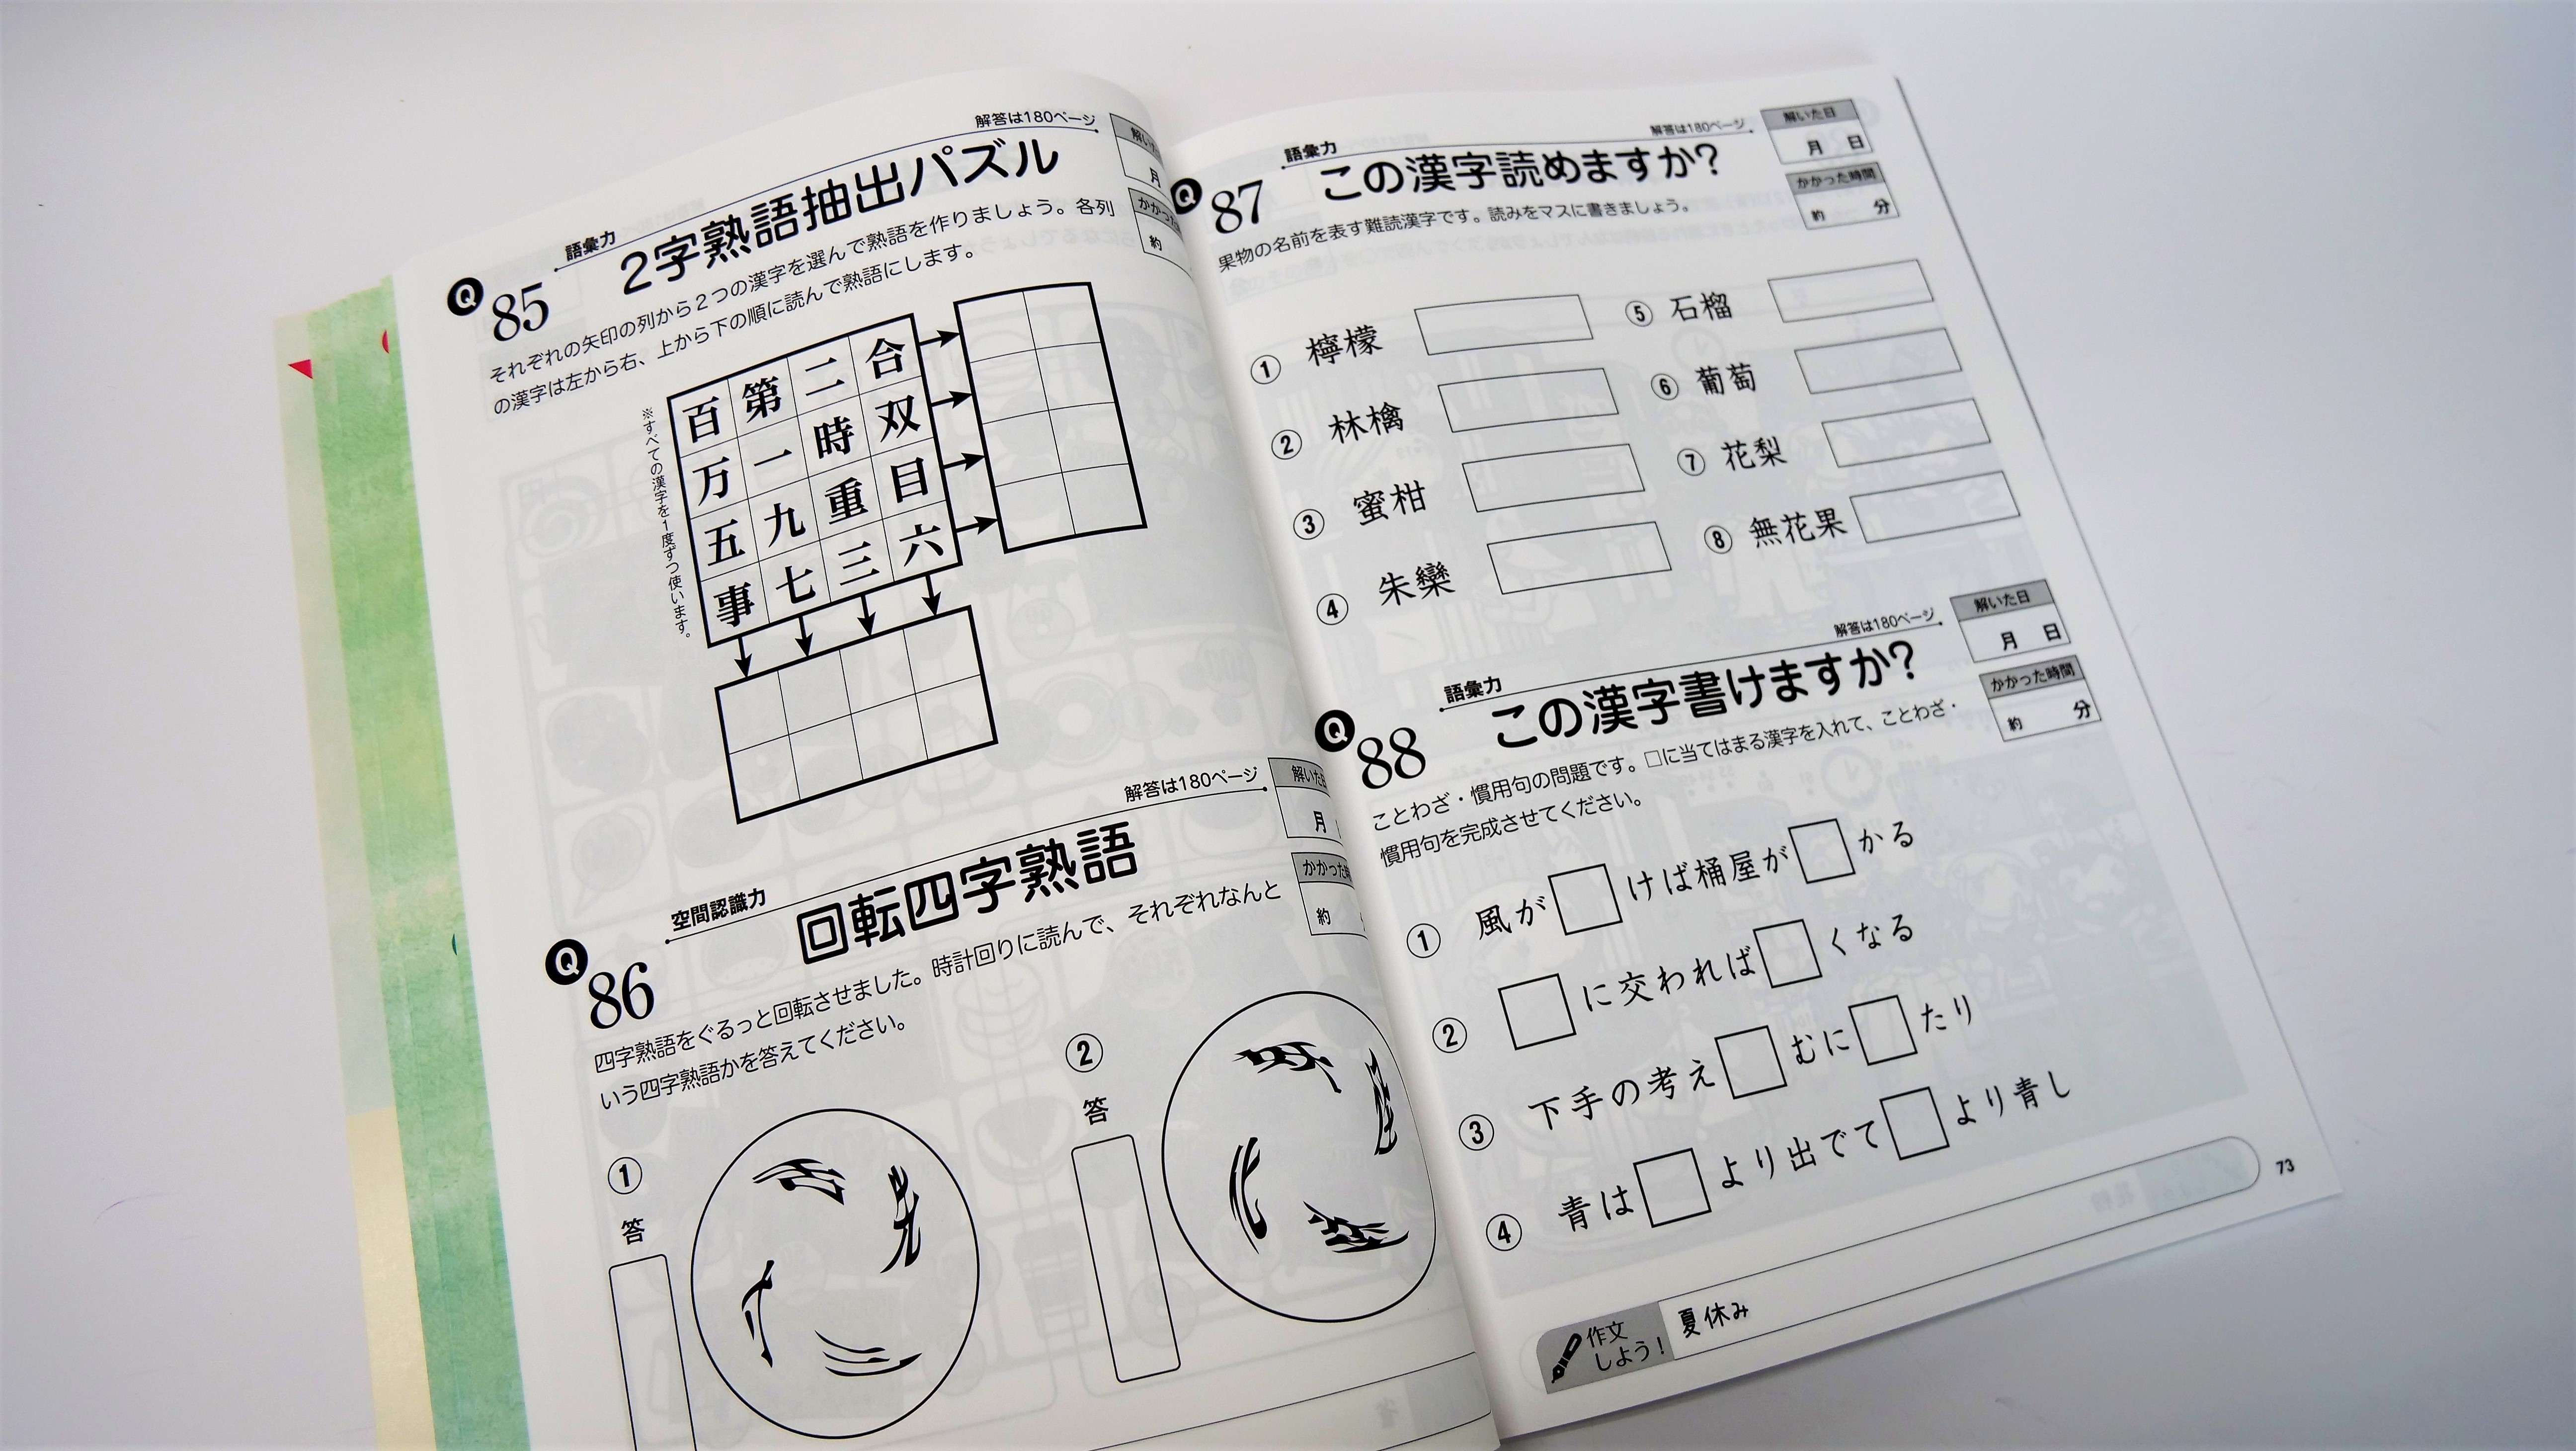 解答は180ページ
語彙力
Q85
2字熟語抽出パズル
それぞれの矢印の列から2つの漢字を選んで熟語を作りましょう。各列
の漢字は左から右、上から下の順に読んで熟語にします。
※すべての漢字を1度ずつ使います。
百 第 二 合
万 一 時 双
五 九 重 目
事 七 三 六
月
約
解答は180ページ
空間認識力
Q86
回転四字熟語
四字熟語をぐるっと回転させました。時計回りに読んで、それぞれなんと
いう四字熟語かを答えてください。
月
約
①
答
②
答
解答は180ページ
語彙力
Q87
この漢字読めますか?
果物の名前を表す難読漢字です。読みをマスに書きましょう。
解いた日
月 日
かかった時間
約 分
① 檸檬
② 林檎
③ 蜜柑
④ 朱欒
⑤ 石榴
⑥ 葡萄
⑦ 花梨
⑧ 無花果
解答は180ページ
語彙力
Q88
この漢字書けますか?
ことわざ・慣用句の問題です。□に当てはまる漢字を入れて、ことわざ・
慣用句を完成させてください。
解いた日
月 日
かかった時間
約 分
① 風が□けば桶屋が□かる
② □に交われば□くなる
③ 下手の考え□むに□たり
④ 青は□より出でて□より青し
作文
しよう!
夏休み
73